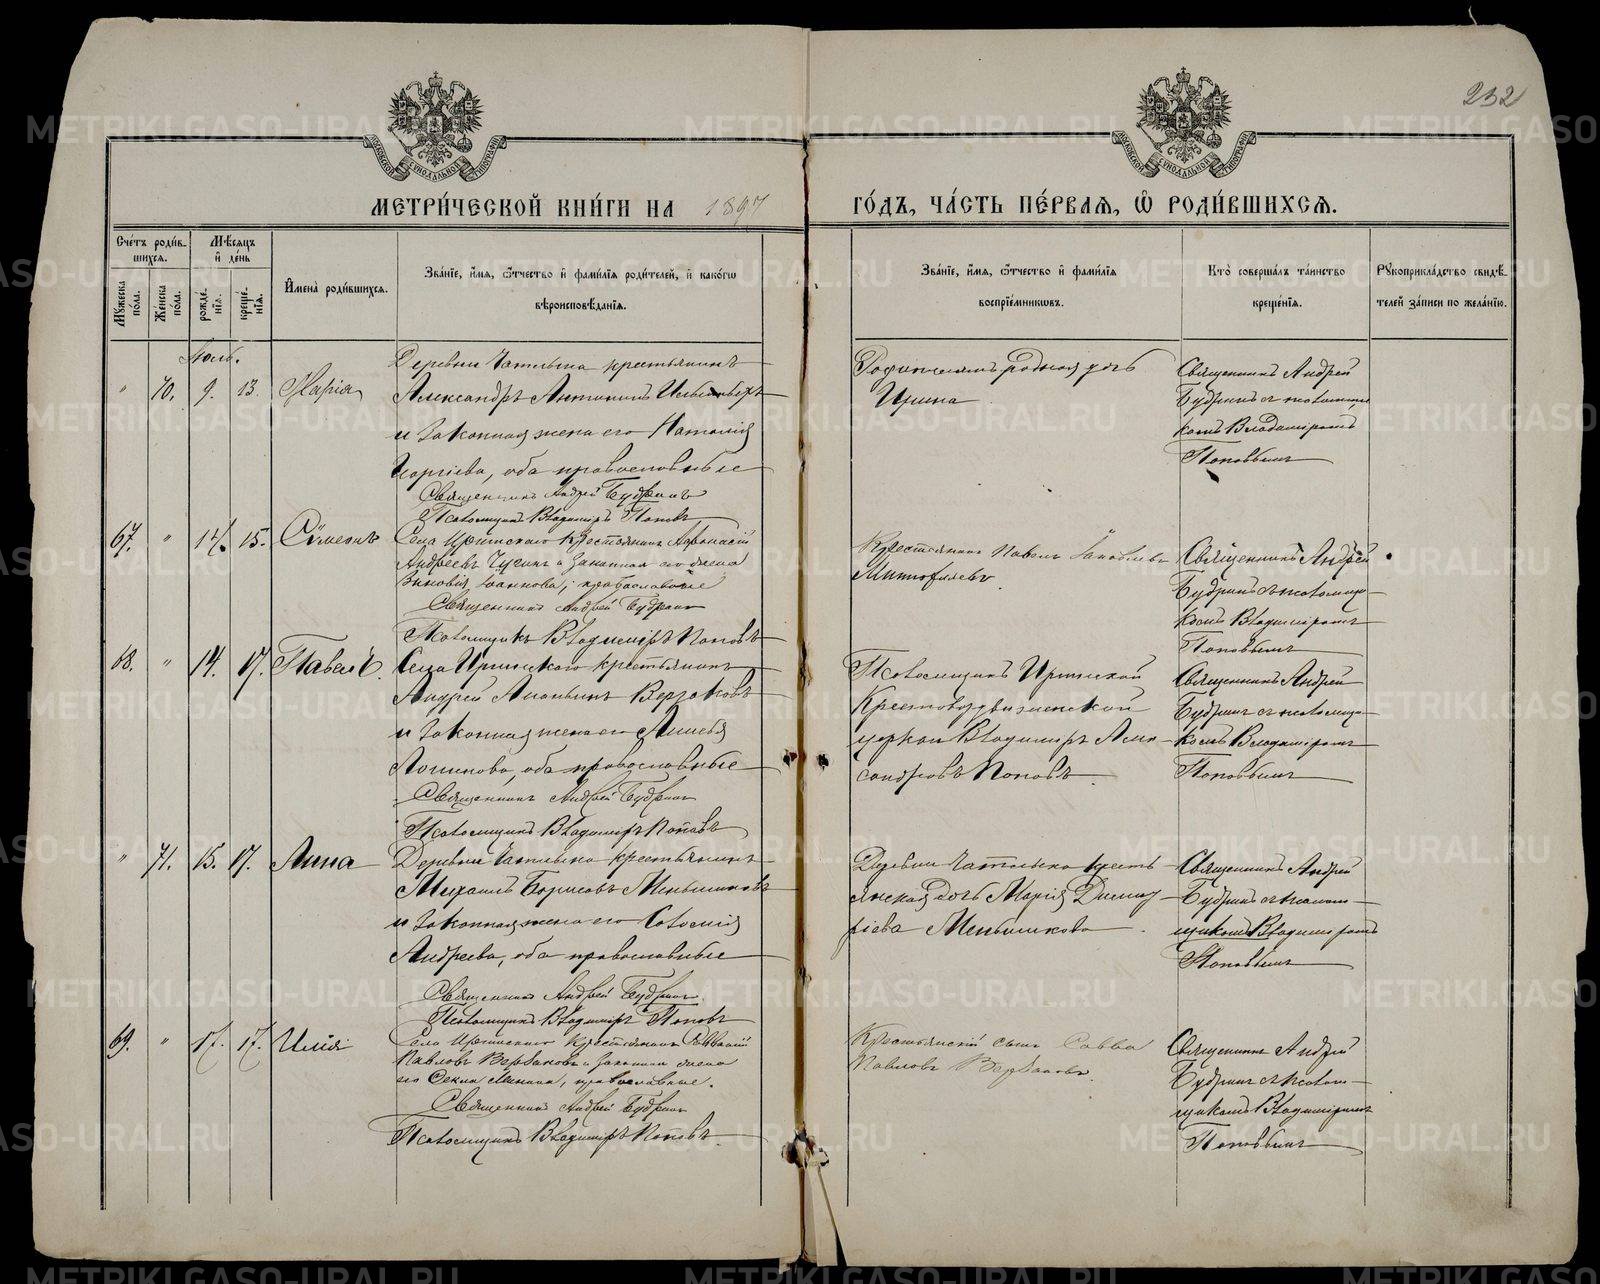 232
МЕТРИ́ЧЕСКОЙ КНИ́ГИ НА 1897 ГО́ДЪ, ЧА́СТЬ ПЕ́РВАЯ, Ѿ РОДИ́ВШИХСЯ.
Сче́тъ роди́в-
шихся.
Мꙋжеска
пола.
Же́нска
пола.
Мѣ́сяцъ
и де́нь
рожде́-
нїя.
креще́-
нїя.
И́мена̀ роди́вшихся.
Зва́нїе, и́мя, ѻ҆́тчество и фами́лїя роди́телей, и како́гѡ
вѣроисповѣ́данїя.
Зва́нїе, и́мя, ѻ҆́тчество и фами́лїя
воспрїе́мникѡвъ.
Кто̀ соверша́лъ та́инство
креще́нїя.
Рꙋкоприкла́дство свидѣ́-
телей за́писи по жела́нїю.
Іюль.
" 70. 9. 13. Марія
Деревни крестьянинъ
Александръ
и законная жена его Наталія
оба православные
Священникъ Андрей Будринъ
Псаломщикъ Владиміръ Поповъ
родная дочь
Ирина
Священникъ Андрей
Будринъ съ псаломщи
комъ Владиміромъ
Поповымъ
67. " 14. 15. Симеонъ
Села Иргинскаго крестьянинъ Афанасій
Андреевъ и законная его жена
Зиновія Іоаннова, православные
Священникъ Андрей Будринъ
Псаломщикъ Владиміръ Поповъ
Крестьянинъ Павелъ Іаковлевъ
Священникъ Андрей
Будринъ съ псаломщи-
комъ Владиміромъ
Поповымъ
68. " 14. 17. Павелъ.
Села Иргинскаго крестьянинъ
Андрей
и законная жена его
оба православные
Священникъ Андрей Будринъ
Псаломщикъ Владиміръ Поповъ
Псаломщикъ Иргинской
Крестовоздвиженской
церкви Владиміръ Алек-
сандровъ Поповъ
Священникъ Андрей
Будринъ съ псаломщи-
комъ Владиміромъ
Поповымъ
" 71. 15. 17. Анна
Деревни крестьянинъ
Михаилъ Борисовъ Меньшиковъ
и законная жена его
Андреева, оба православные
Священникъ Андрей Будринъ
Псаломщикъ Владиміръ Поповъ
Деревни кресть-
янская дочь Марія Димит-
ріева Меньшикова
Священникъ Андрей
Будринъ съ псалом-
щикомъ Владиміромъ
Поповымъ
69. " 17. 17. Илія
Села Иргинскаго крестьянинъ
Павловъ и законная жена
его православные.
Священникъ Андрей Будринъ
Псаломщикъ Владиміръ Поповъ.
Крестьянскій сынъ Савва
Павловъ
Священникъ Андрей
Будринъ съ псалом-
щикомъ Владиміромъ
Поповымъ
METRIKI.GASO-URAL.RU